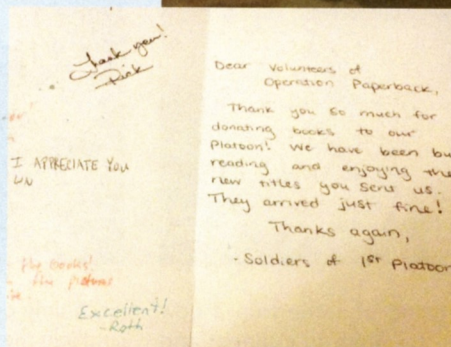 Thank you!
Rick
I APPRECIATE YOU
the books!
the
Excellent!
-Roth
Dear Volunteers of
Operation Paperback,
Thank you so much for
donating books to our
Platoon! We have been bu
reading and enjoying the
new titles you sent us.
They arrived just fine!
Thanks again,
-Soldiers of 1st Platoon